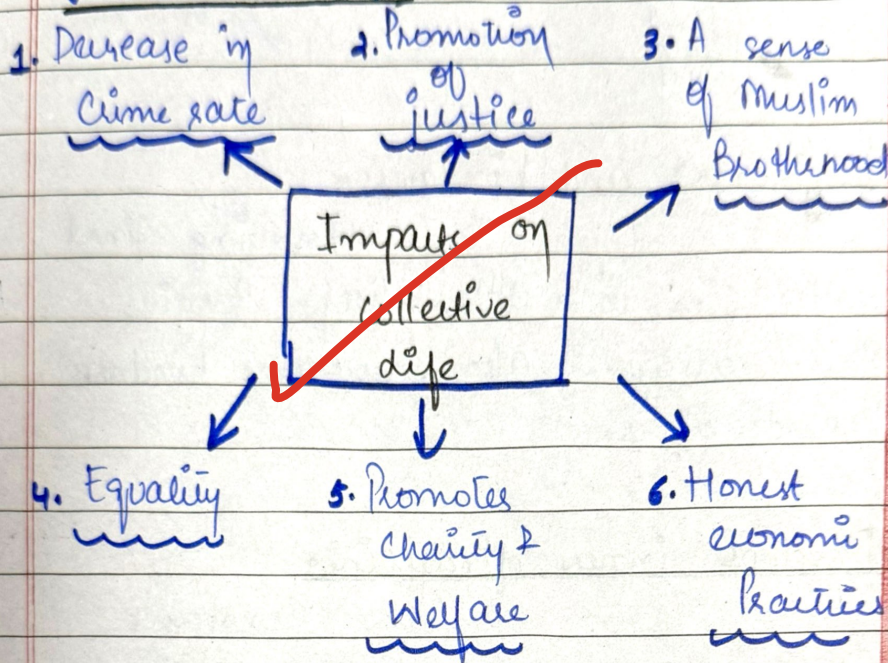 1. Decrease in
Crime rate
2. Promotion
of
justice
3. A sense
of Muslim
Brotherhood
Impacts on
collective
life
4. Equality
5. Promotes
Charity &
Welfare
6. Honest
economi
Practices